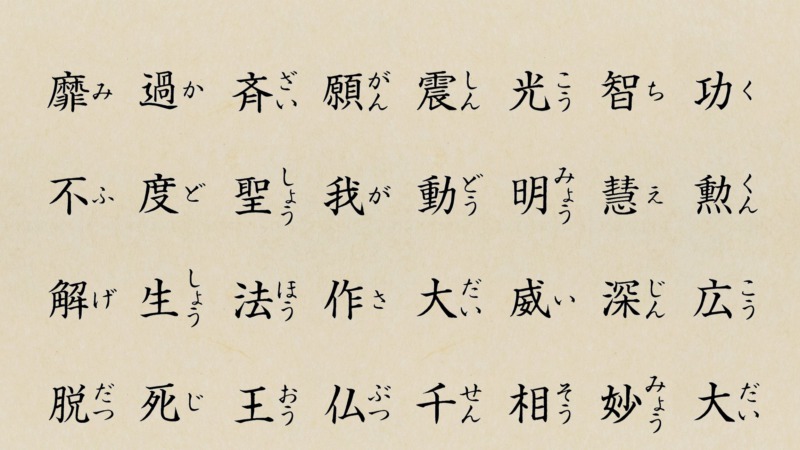 功勲広大
くくんこうだい
智慧深妙
ちえじんみょう
光明威相
こうみょういそう
震動大千
しんどうだいせん
願我作仏
がんがさぶつ
斉聖法王
ざいしょうほうおう
過度生死
かどしょうじ
靡不解脱
みふげだつ